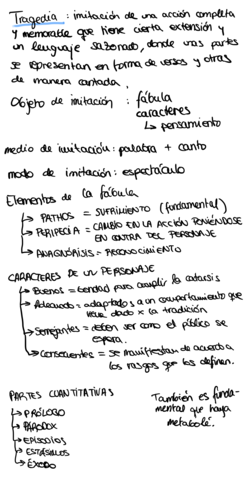 Tragedia : imitación de una acción completa
y memorable que tiene cierta extensión y
un lenguaje sazonado, donde unas partes
se representan en forma de versos y otras
de manera cantada.
Objeto de imitación : fábula
caracteres
↳ pensamiento
medio de imitación: palabra + canto
modo de imitación: espectáculo
Elementos de la fábula
↳ PATHOS = SUFRIMIENTO (fundamental)
↳ PERIPECIA = CAMBIO EN LA ACCIÓN PONIÉNDOSE
EN CONTRA DEL PERSONAJE
↳ ANAGNÓRISIS = RECONOCIMIENTO
CARACTERES DE UN PERSONAJE
↳ Buenos = bondad para cumplir la catarsis
↳ Adecuado = adaptados a un comportamiento que
viene dado x la tradición
↳ Semejantes = deben ser como el público se
espera.
↳ Consecuentes = se manifiestan de acuerdo a
los rasgos que los definen.
PARTES CUANTITATIVAS
↳ PRÓLOGO
↳ PÁRODOX
↳ EPISODIOS
↳ ESTÁSIMOS
↳ ÉXODO
También es funda-
mental que haya
metabolé.